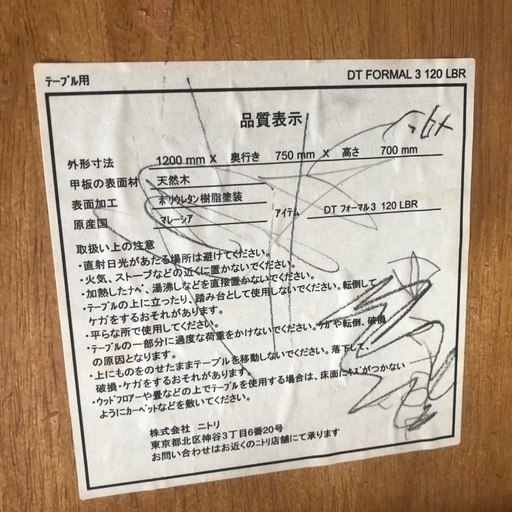 テーブル用 DT FORMAL 3 120 LBR
品質表示
外形寸法 1200 mm X 奥行き 750 mm X 高さ 700 mm
甲板の表面材 天然木
表面加工 ポリウレタン樹脂塗装
原産国 マレーシア アイテム DT フォーマル3 120 LBR
取扱い上の注意
・直射日光があたる場所は避けてください。
・火気、ストーブなどの近くに置かないでください。
・加熱したナベ、湯沸しなどを直接置かないでください。
・テーブルの上に立ったり、踏み台として使用しないでください。転倒して
ケガをするおそれがあります。
・平らな所で使用してください。
・テーブルの一部分に過度な荷重をかけないでください。ケガや転倒、破損
の原因となります。
・上にものをのせたままテーブルを移動しないでください。落下して、
破損・ケガをするおそれがあります。
・ウッドフロアーや畳などの上でテーブルを使用する場合は、床面にキズがつかない
ようにカーペットなどを敷いてください。
株式会社 ニトリ
東京都北区神谷3丁目6番20号
お問い合わせはお近くのニトリ店舗にて承ります